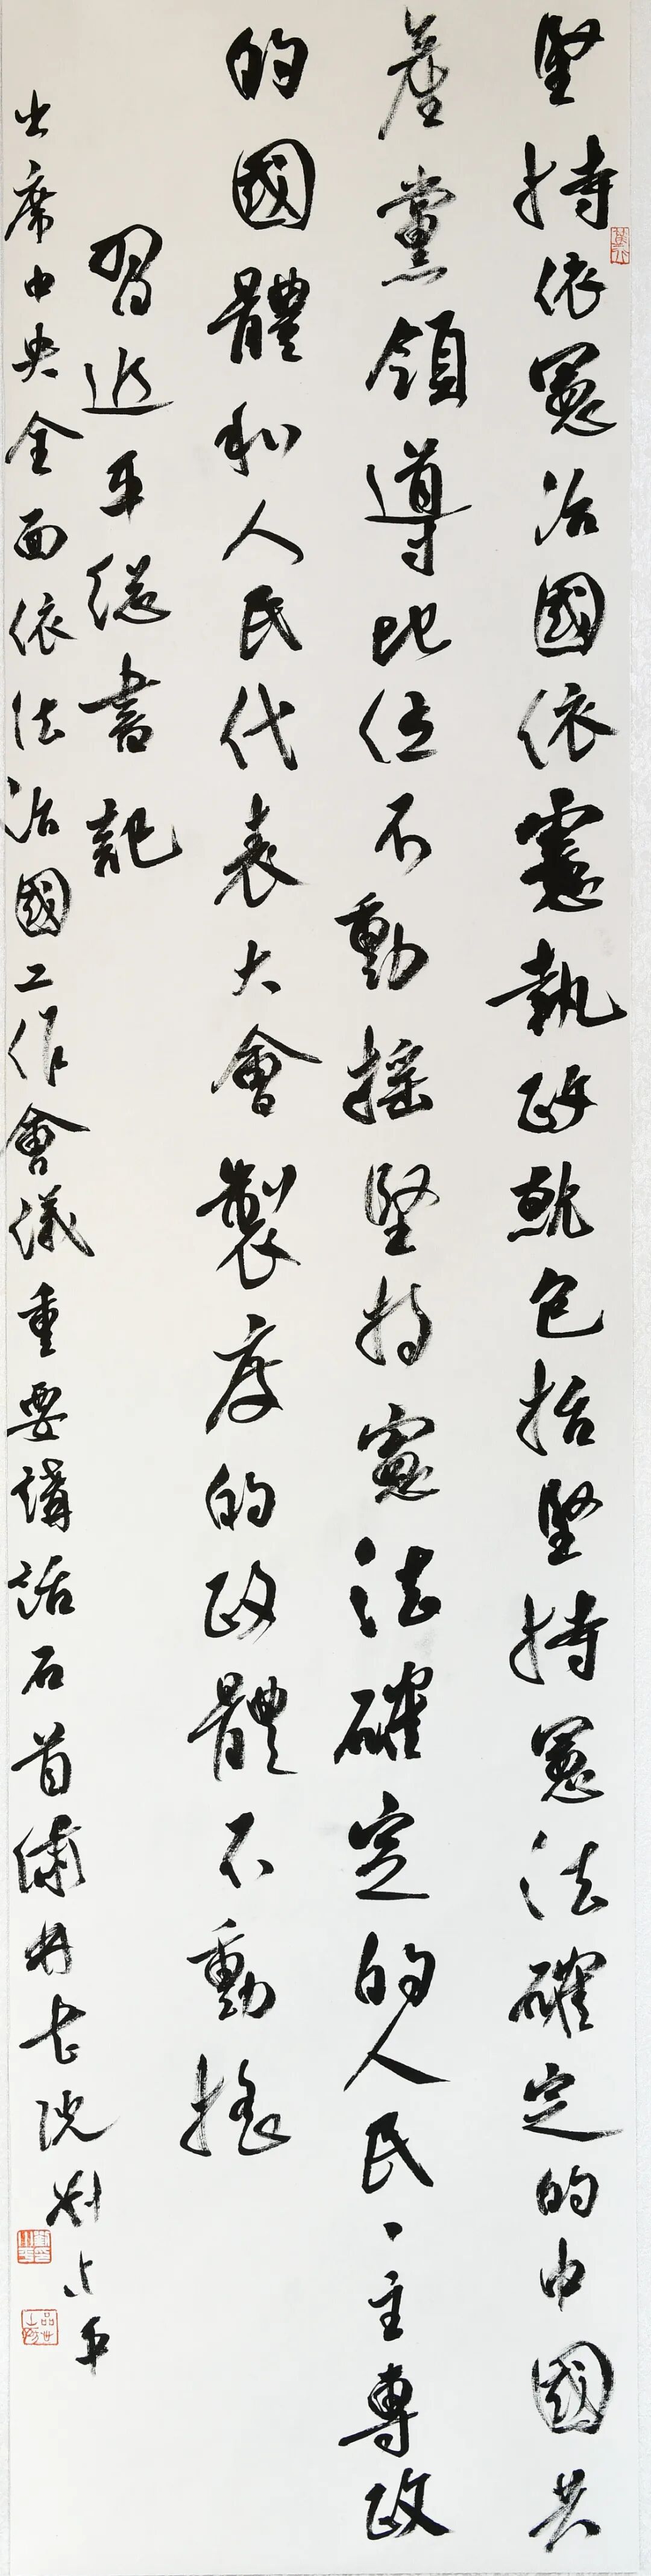 堅持依憲治國依憲執政就包括堅持憲法確定的中國共
產黨領導地位不動搖堅持憲法確定的人民主專政
的國體和人民代表大會製度的政體不動搖
習近平總書記
出席中央全面依法治國工作會議重要講話石首繡林書院劉占平